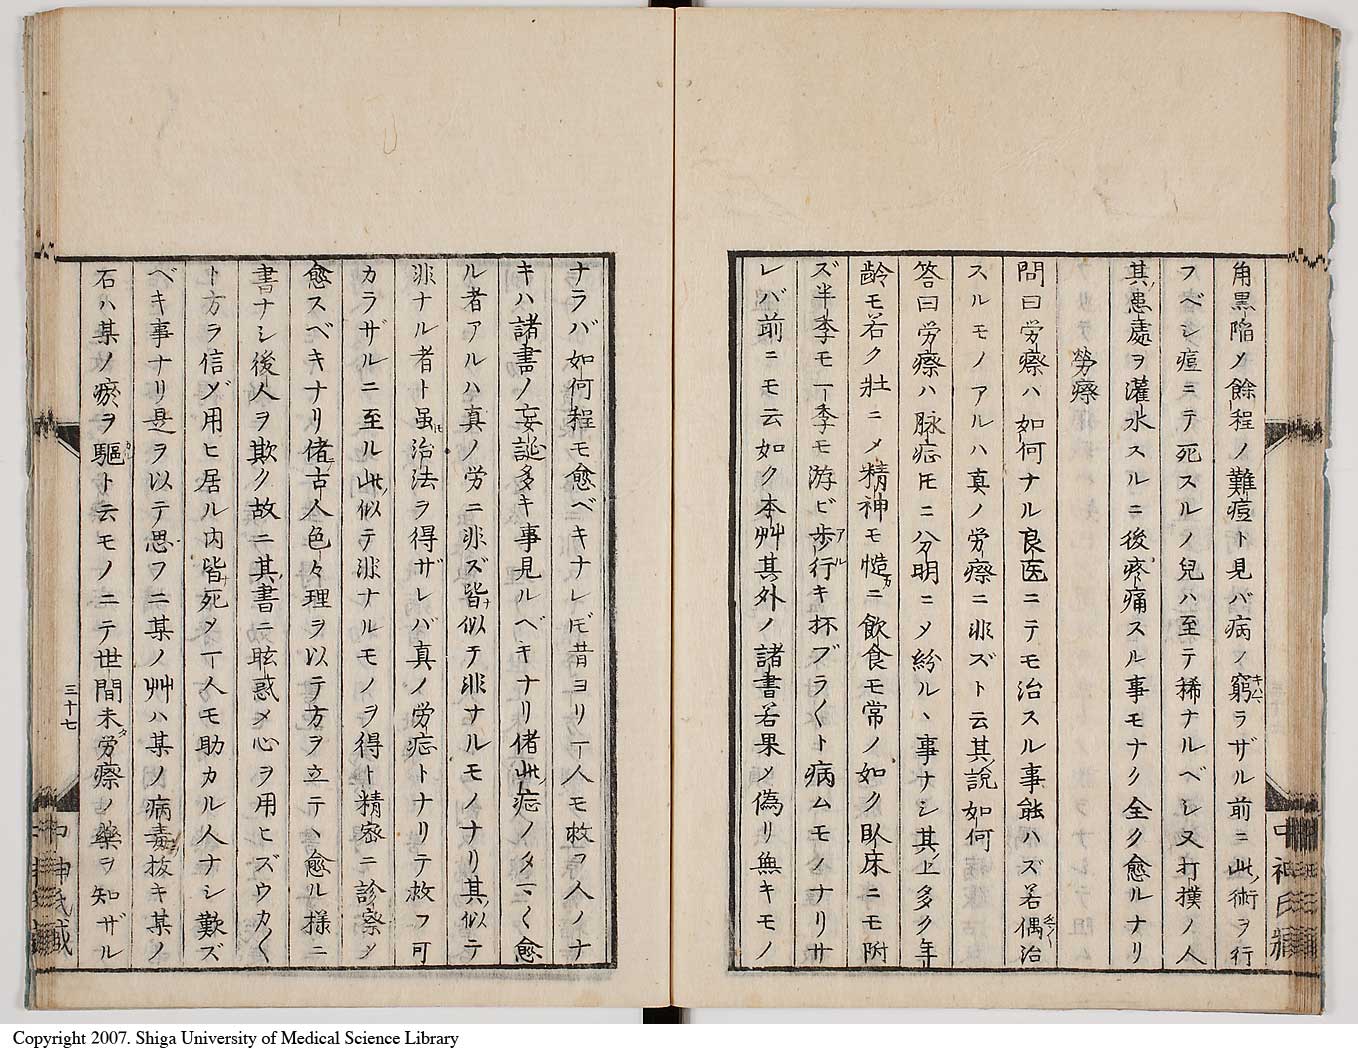 角黒陥メ餘程ノ難痘ト見バ病ノ窮ラザル前ニ此術ヲ行
フベシ痘ニテ死スルノ兒ハ至テ稀ナルベシ又打撲ノ人
其患處ヲ灌水スルニ後疼痛スル事モナク全ク愈ルナリ
勞瘵
問曰労瘵ハ如何ナル良医ニテモ治スル事能ハズ若偶治
スルモノアルハ真ノ労瘵ニ非ズト云其説如何
答曰労瘵ハ脉症𪜈ニ分明ニメ紛ル丶事ナシ其上多ク年
齡モ若ク壮ニメ精神モ慥ニ飲食モ常ノ如ク臥床ニモ附
ズ半季モ一季モ游ビ歩行キ杯ブラ〱ト病ムモノナリサ
レバ前ニモ云如ク本艸其外ノ諸書若果メ偽リ無キモノ
ナラバ如何程モ愈ベキナレ𪜈昔ヨリ一人モ救ヲ人ノナ
キハ諸書ノ妄誕多キ事見ルベキナリ偖此症ノタマ〱愈
ル者アルハ真ノ労ニ非ズ皆似テ非ナルモノナリ其似テ
非ナル者ト虽治法ヲ得ザレバ真ノ労症トナリテ救フ可
カラザルニ至ル此似テ非ナルモノヲ得ト精密ニ診察メ
愈スベキナリ偖古人色々理ヲ以テ方ヲ立テハ愈ル様ニ
書ナシ後人ヲ欺ク故ニ其書ニ眩惑メ心ヲ用ヒズウカ〱
ト方ヲ信ジ用ヒ居ル内皆死メ一人モ助カル人ナシ歎ズ
ベキ事ナリ是ヲ以テ思フニ某ノ艸ハ某ノ病毒抜キ某ノ
石ハ某ノ瘀ヲ驅ト云モノニテ世間未労瘵ノ藥ヲ知ザル
三十七
中神氏藏
Copyright 2007. Shiga University of Medical Science Library